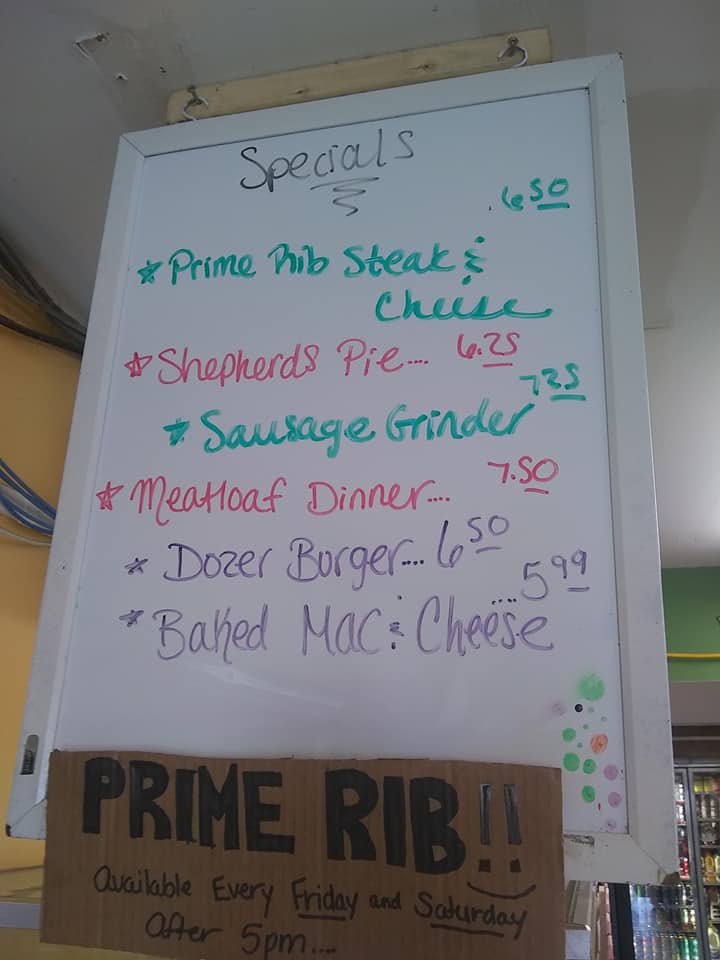 Specials
.650
* Prime Rib Steak &
Cheese
* Shepherds Pie... 6.25
725
* Sausage Grinder
* Meatloaf Dinner.... 7.50
* Dozer Burger... 650
....599
* Baked Mac & Cheese
PRIME RIB!!
Available Every Friday and Saturday
After 5pm....